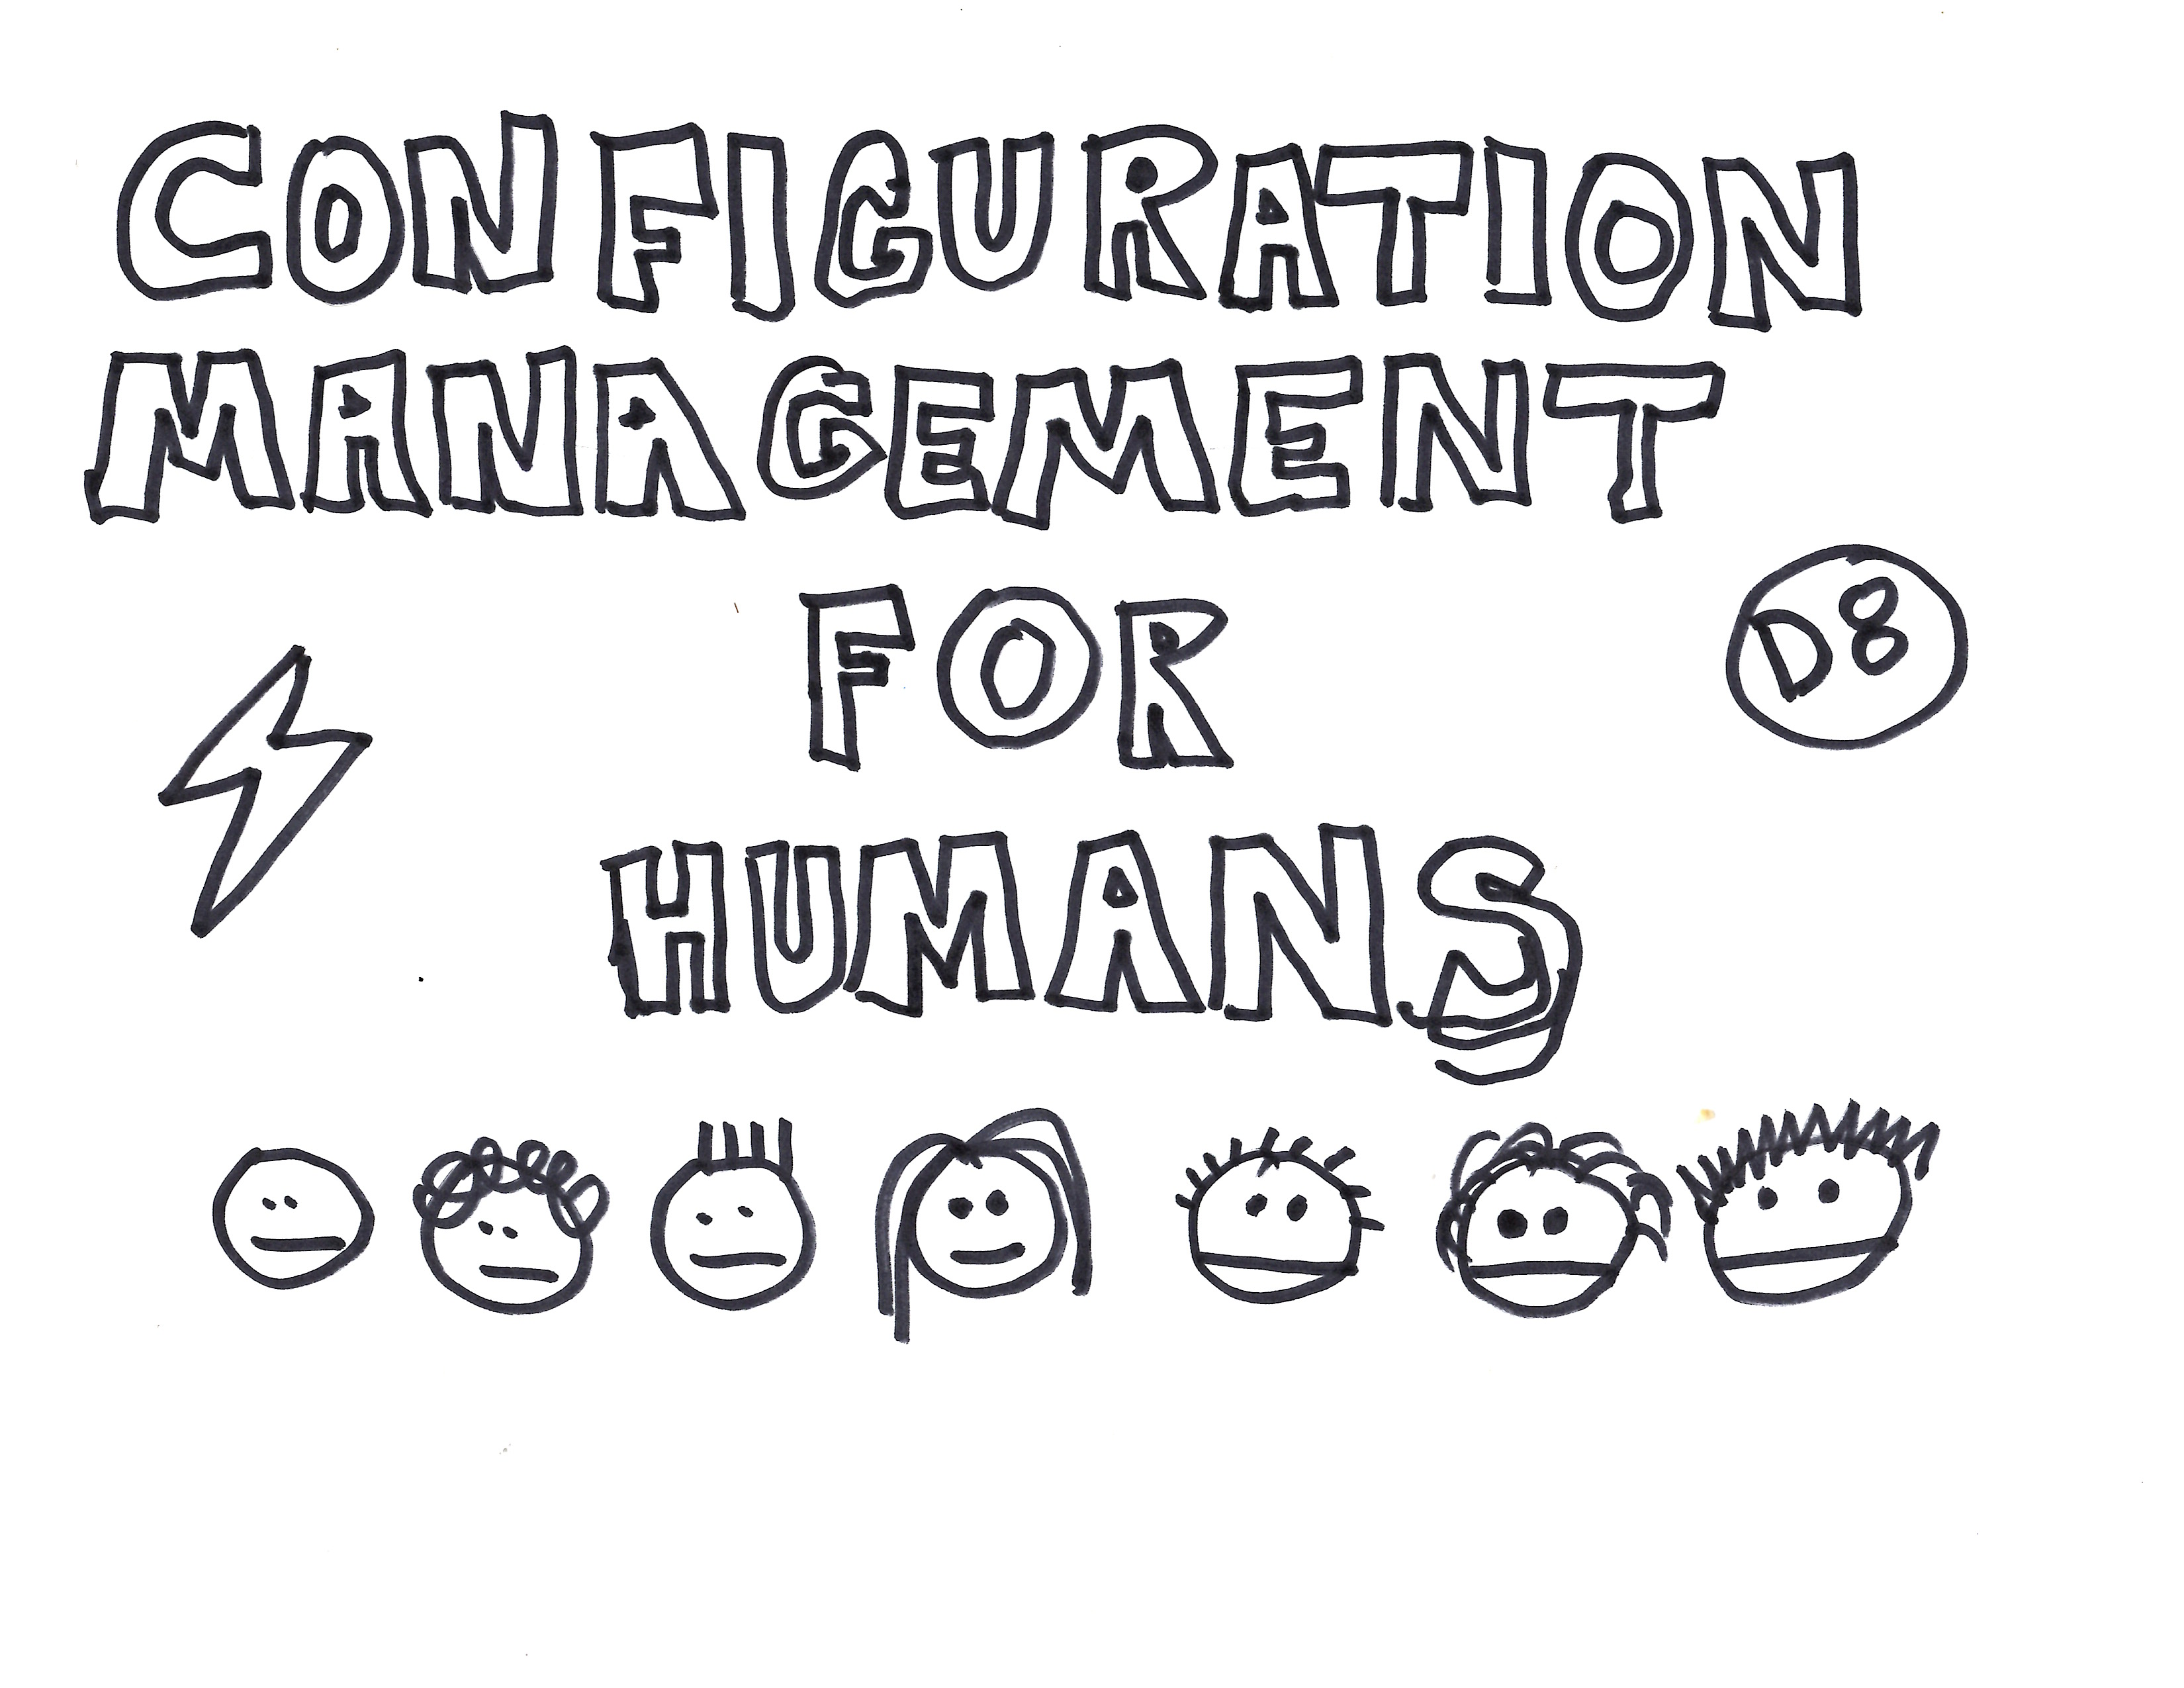 CONFIGURATION
MANAGEMENT
FOR
D8
HUMANS